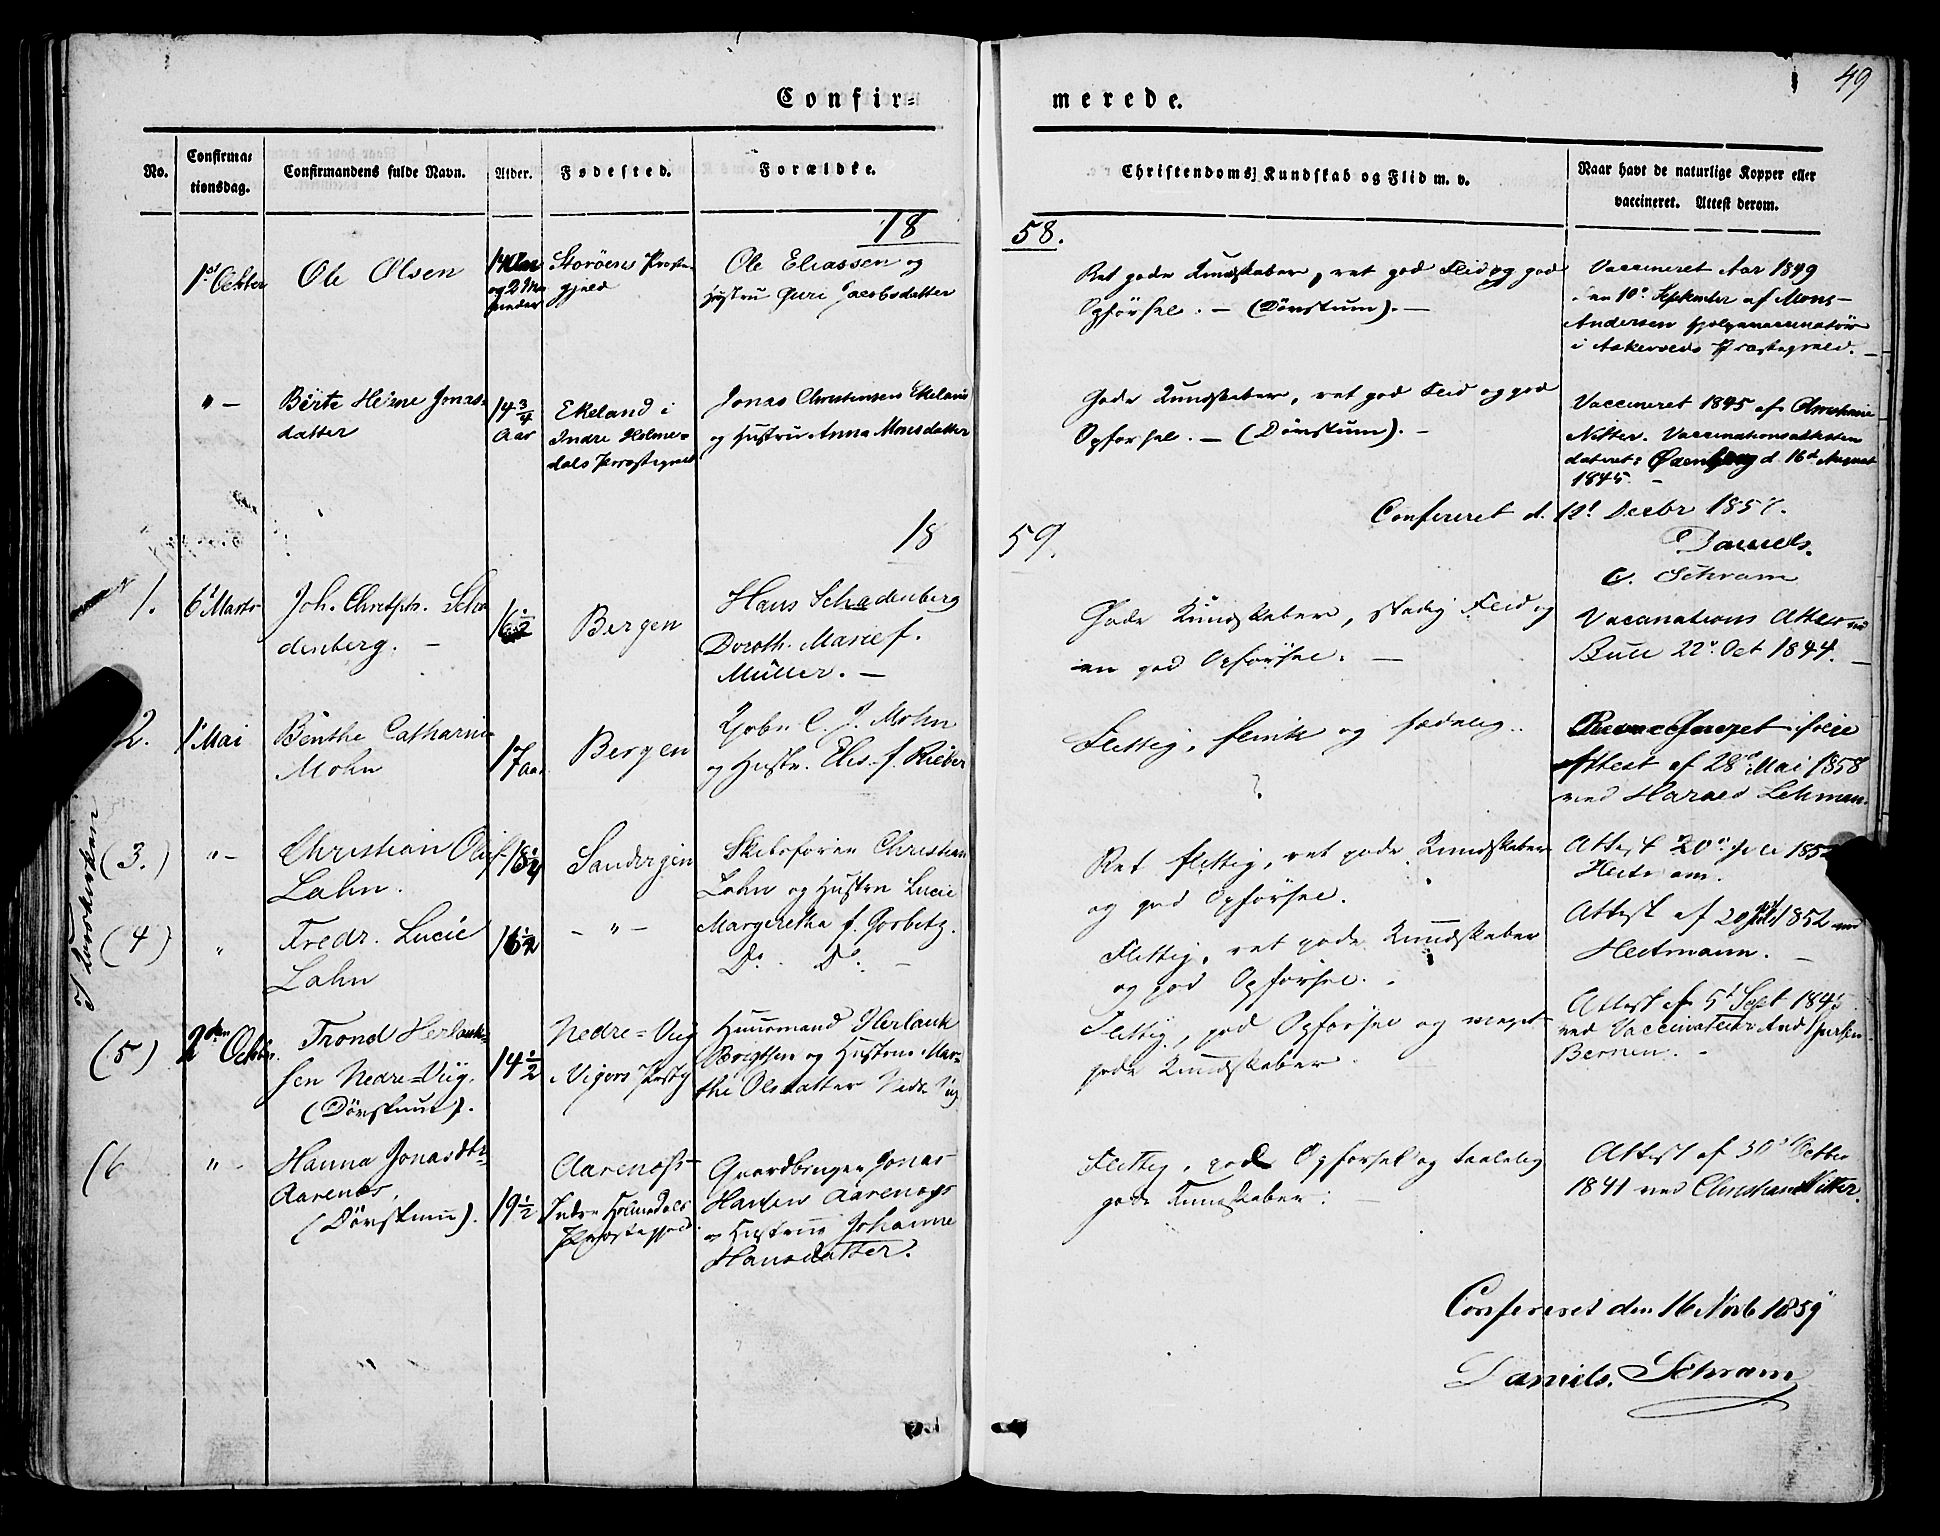 49
Confir=
merede.
No.
Confirma=
tionsdag.
Confirmandens fulde Navn.
Alder.
Fødested.
Forældre.
Christendoms Kundskab og Flid m. v.
Naar havt de naturlige Kopper eller
vaccineret. Attest derom.
18
58.
1st Octber
Ole Olsen
14 Aar
og 2 Maa
neder
Storöens Præste
gjeld
Ole Eliassen og
Hustru Guri Jacobsdatter
Ret gode Kundskaber, ret god Flid og god
Opførsel. — (Døvstum). —
Vaccineret Aar 1849
den 10de September af Mons
Andersen Hjelpevaccinatör
i Askevolds Præstegjeld. —
" —
Birte Heline Jonas=
datter
14 3/4
Aar
Ekeland i
Indre Holme=
dals Præstegjeld
Jonas Christensen Ekeland
og Hustru Anna Monsdatter
Gode Kundskaber, ret god Flid og god
Opførsel. — (Døvstum). —
Vaccineret 1845 af Christiane
Nitter. Vaccinationsattesten
dateret d. 16d August
1845. —
Confereret d. 12t Decbr 1858.
Daniels.
C. Schram
18
59.
1.
6t Marts
Joh. Christph. Scha
denberg. —
16 1/2
Bergen
Hans Schadenberg
Doroth. Marie f.
Müller. —
Gode Kundskaber, stadig Flid og
en god Opførsel. —
Vaccinations Attest ved
Bull 22de Oct 1844. —
2.
1t Mai
Benthe Catharine
Mohn
17 Aar
Bergen
Kjøbm C. J. Mohn
og Hustr. Elis. f. Rieber
Flittig, flink og sædelig.
?
ifølge
Attest af 28de Mai 1858
ved Harald Lehman.
I Korskirken
(3.)
" —
Christian Oluf
Lahn.
18 1/4
Sandvigen
Skibsfører Christian
Lahn og Hustru Lucie
Margeretha f. Gorbitz.
Ret flittig, ret gode Kundskaber
og god Opførsel.
Attest 20de Juli 1852
(4)
"
Fredr. Lucie
Lahn
16 1/2
— " —
Do. Do. —
Flittig, ret gode Kundskaber
og god Opførsel.
Attest af 20 Juli 1852 ved
Heitmann. —
(5)
2den Octbr.
Trond Herlauk=
sen Nedre=Viig.
(Døvstum).
14 1/2
Nedre=Viig
Vigørs Præstg
Huusmand Herlauk
Brigtsen og Hustru Mar=
the Olsdatter Nedre Viig
Flittig, god Opførsel og meget
gode Kundskaber.
Attest af 5t Sept 1845
ved Vaccinateur And.
(6
" —
Hanna Jonasdtr
Aarenæs,
(Døvstum).
19 1/2
Aarenæss
Indre Holmedals
Præstegjeld
Gaardbruger Jonas
Hansen Aarenæs
og Hustrue Johanne
Hansdatter.
Flittig, god Opførsel og taalelig
gode Kundskaber. —
Attest af 30d Octber
1841 ved Christiane Nitter.
Confereret den 16 Novb 1859
Daniels. Schram